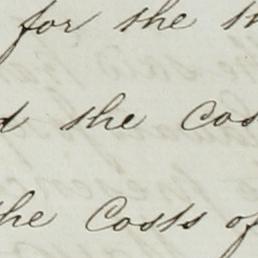 for the
the Cos
the Costs of